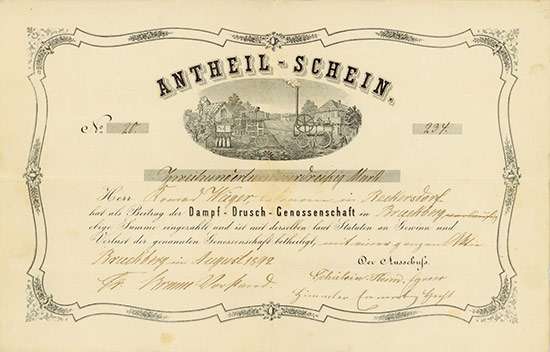 ANTHEIL-SCHEIN.
No. 20 234.
Zweihundert vierunddreißig Mark
Herr Konrad Wäger, in Reckersdorf
hat als Beitrag der Dampf-Drusch-Genossenschaft in Bruckberg
obige Summe eingezahlt und ist mit derselben laut Statuten an Gewinn und
Verlust der genannten Genossenschaft betheiligt, mit einer ganzen
Bruckberg im August 1892 Der Ausschuß.
Fr. Braun Vorstand